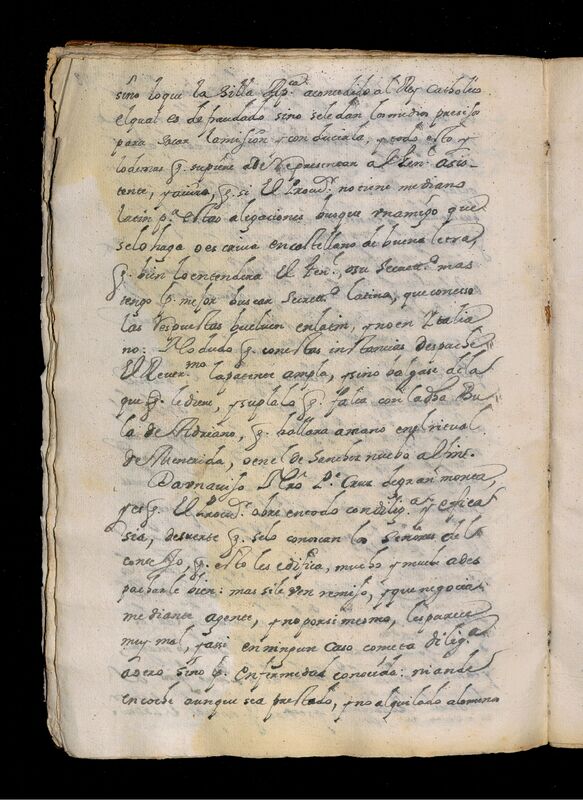 sino loque la Silla App.ca aconcedido al Rey Catholico
elqual es defraudado sino seledan los medios presisos
para sacar la mision y conducirla, y todo esto y
lodemas q. supiere ade representar al Gen.l asis-
tente, y aura, q. si El Procu.r no tiene mediano
latin p.a estas alegaciones busque un amigo que
selo haga o escriva encastellano de buena letra,
q. bien lo entendera El Gen.l o su Secrett.o mas
tengo p. mejor buscar Secrett.o latino, que con esso
las respuestas buelven en latin, y no en Italia
no: No dudo q. con estas instancias despache
El Rever.mo la patente ampla, y sino valgase de la
que q. le diere, y supla lo q. falta con la dha Bu-
la de Adriano, q. hallara a mano en el ritual
de o en el de Sanchez nuebo al fin.
Otro P.e Cruz de gran monta,
y es q. El Procu.r obre en todo con dilig.a y efica
sia, desuerte q. selo conoscan los Señores de el
consejo, q. esto les edifica, mucho y mueve a des
pacharle bien: mas si le ven remiso, y que negocia
mediante agente, y no por si mesmo, les parece
muy mal, y assi en ningun caso cometa dilig.a
a otro sino p. Enfermedad conocida: ni ande
en coche aunque sea prestado, y no alquilado alomenos